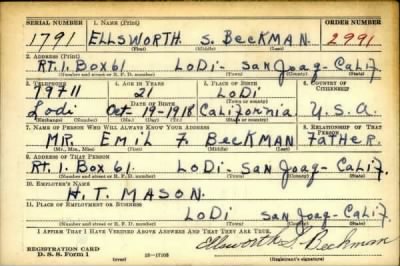 SERIAL NUMBER 1. NAME (Print) ORDER NUMBER
1791 ELLSWORTH S. BECKMAN 2991
(First) (Middle) (Last)
2. ADDRESS (Print)
RT. 1. BOX 61. LODI- SAN JOAQ- CALIF.
(Number and street or R. F. D. number) (Town) (County) (State)
3. TELEPHONE 4. AGE IN YEARS 5. PLACE OF BIRTH 6. COUNTRY OF CITIZENSHIP
79711 21 LODI
DATE OF BIRTH (Town or county)
Lodi Oct-19-1918 California. U.S.A.
(Exchange) (Number) (Mo.) (Day) (Yr.) (State or country)
7. NAME OF PERSON WHO WILL ALWAYS KNOW YOUR ADDRESS 8. RELATIONSHIP OF THAT PERSON
MR. EMIL F. BECKMAN FATHER.
(Mr., Mrs., Miss) (First) (Middle) (Last)
9. ADDRESS OF THAT PERSON
RT. 1. BOX 61. LODI- SAN JOAQ- CALIF.
(Number and street or R. F. D. number) (Town) (County) (State)
10. EMPLOYER'S NAME
H. T. MASON.
11. PLACE OF EMPLOYMENT OR BUSINESS
LODI SAN JOAQ- CALIF.
(Number and street or R. F. D. number) (Town) (County) (State)
I AFFIRM THAT I HAVE VERIFIED ABOVE ANSWERS AND THAT THEY ARE TRUE.
REGISTRATION CARD
D. S. S. Form 1
(over) 16-17105
Ellsworth S. Beckman
(Registrant's signature)